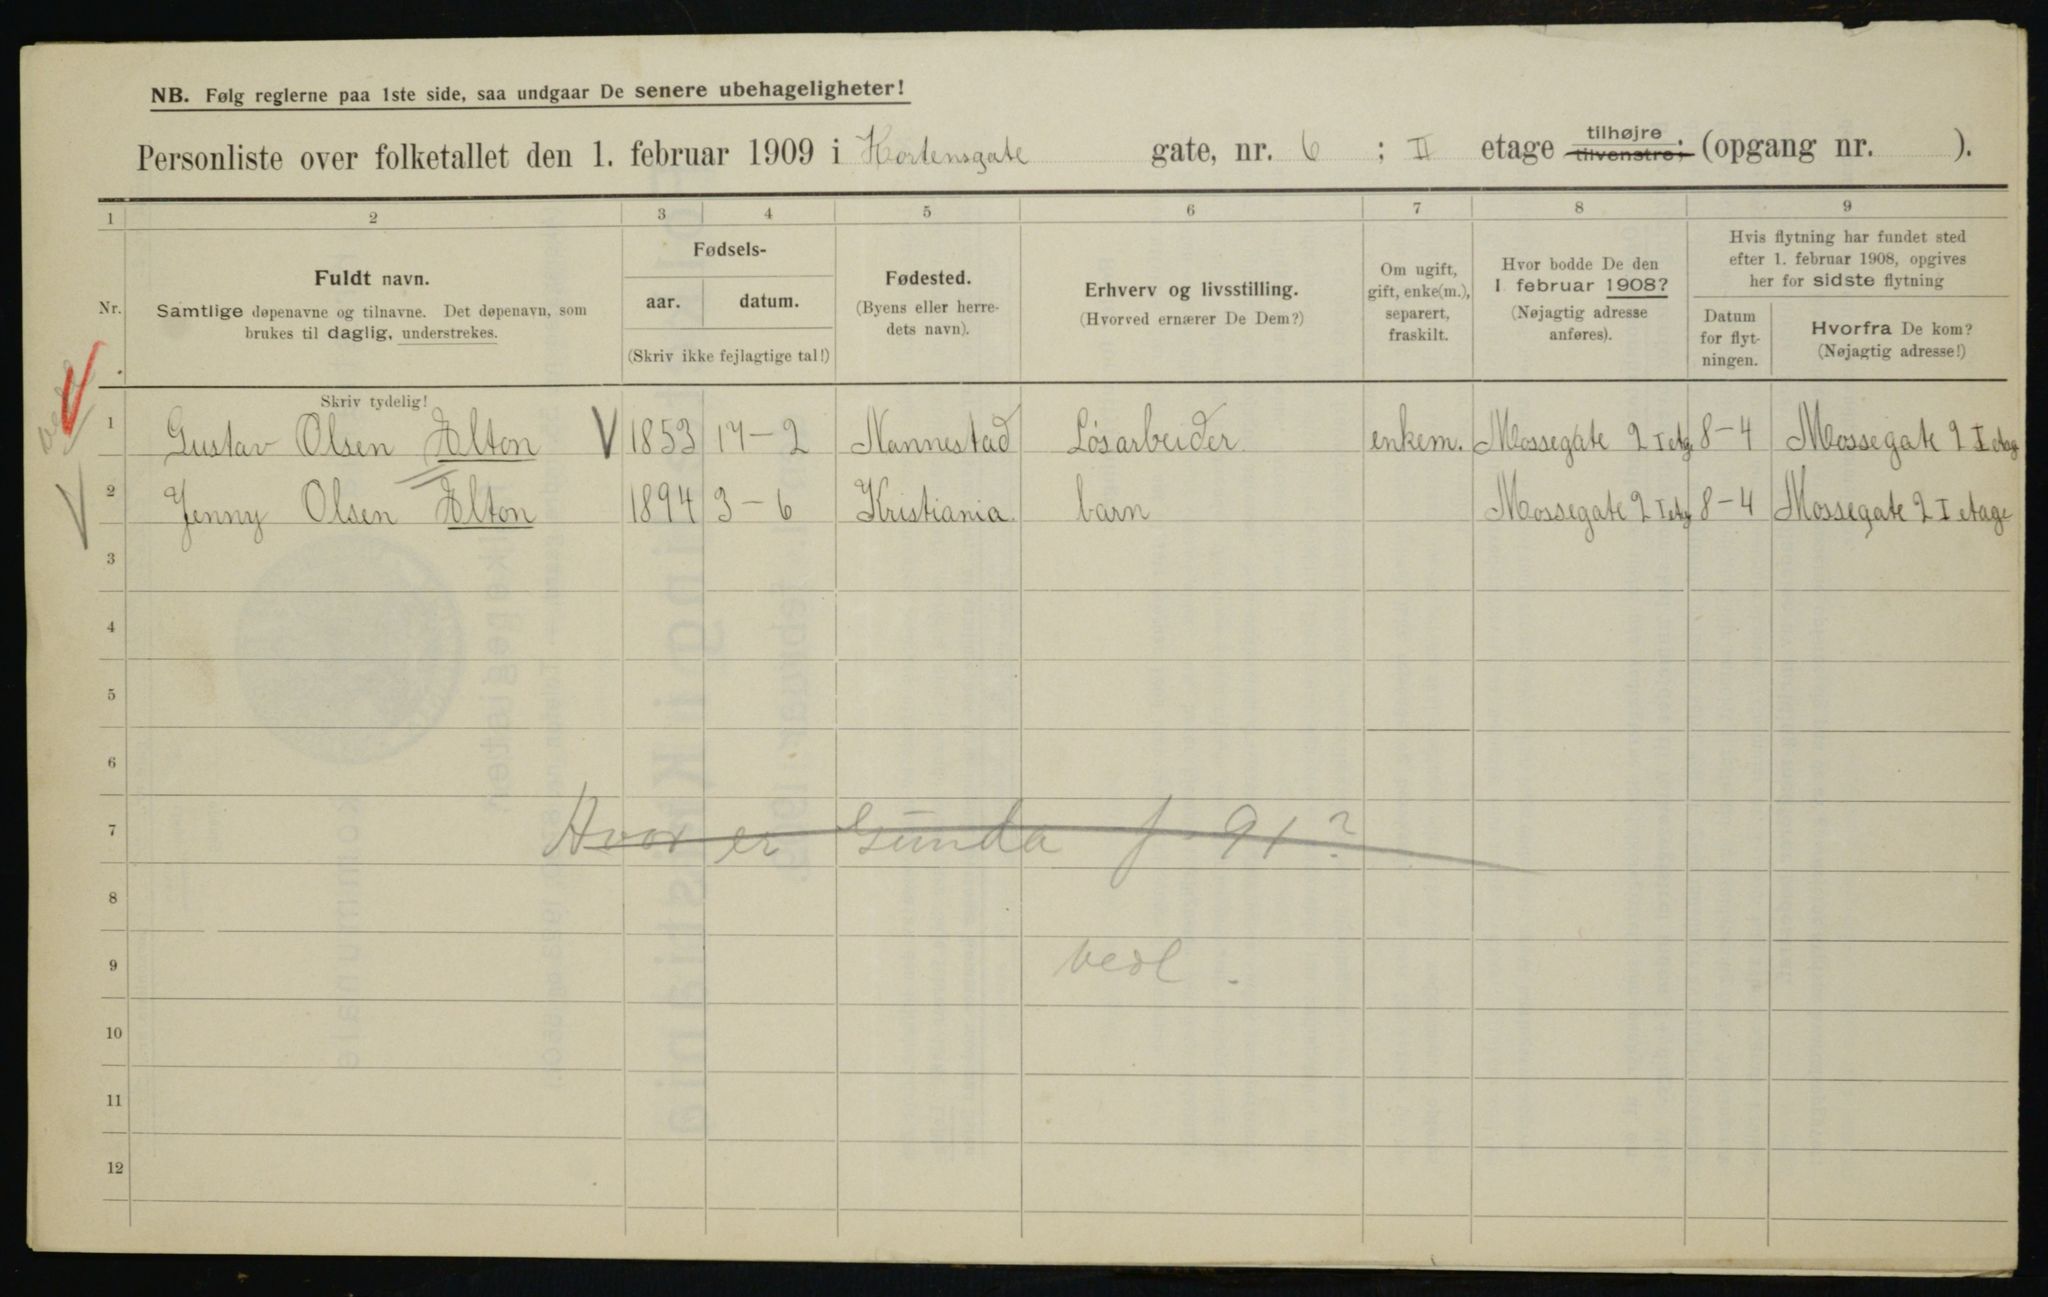 NB. Følg reglerne paa 1ste side, saa undgaar De senere ubehageligheter!
Personliste over folketallet den 1. februar 1909 i Hortensgate gate, nr. 6 ; II etage tilhøjre tilvenstre; (opgang nr. ).
1 2 3 4 5 6 7 8 9
Nr.
Fuldt navn.
Samtlige døpenavne og tilnavne. Det døpenavn, som
brukes til daglig, understrekes.
Fødsels-
aar. datum.
(Skriv ikke fejlagtige tal!)
Fødested.
(Byens eller herre-
dets navn).
Erhverv og livsstilling.
(Hvorved ernærer De Dem?)
Om ugift,
gift, enke(m.),
separert,
fraskilt.
Hvor bodde De den
1. februar 1908?
(Nøjagtig adresse
anføres).
Hvis flytning har fundet sted
efter 1. februar 1908, opgives
her for sidste flytning
Datum
for flyt-
ningen.
Hvorfra De kom?
(Nøjagtig adresse!)
Skriv tydelig!
1 Gustav Olsen Elton V 1853 17-2 Nannestad Løsarbeider enkem. Mossegate 2 I etg 8-4 Mossegate 2 I etag
2 Jenny Olsen Elton 1894 3-6 Kristiania. barn Mossegate 2 I etg 8-4 Mossegate 2 I etage
3
4
5
6
7 Hvor er Gunda f 91?
8
9 vedl.
10
11
12